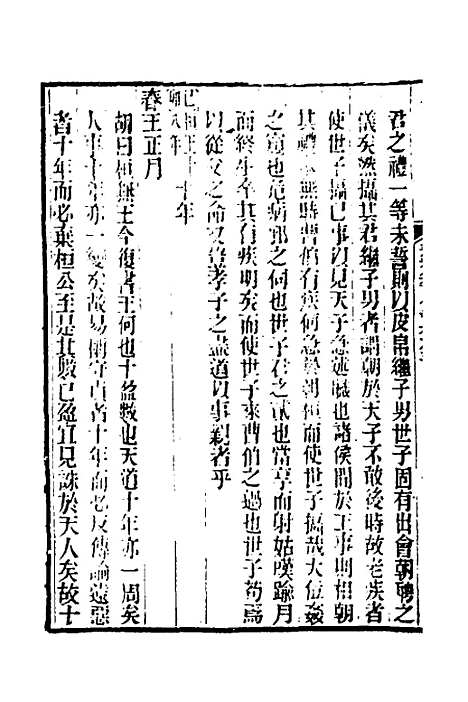 君之禮一等未誓則以皮帛繼子男世子固有出會朝聘之
儀矣然攝其君繼子男者謂朝於天子不敢後時故老疾者
使世子攝已事以見天子急述職也諸侯間於王事則相朝
其禮本無時曹伯有疾何急於朝桓而使世子攝哉大位姦
之窺也危病邪之伺也世子君之貳也當享而射姑嘆踰月
而終生卒其有疾明矣而使世子來曹伯之過也世子苟焉
以從父之命又豈孝子之盡道以事親者乎
桓王十年
春王正月
胡曰桓無王今復書王何也十盈數也天道十年亦一周矣
人事十年亦一變矣故易稱守貞者十年而必反傳論遠惡
者十年而必棄桓公至是其數已盈宜見誅於天人矣故十